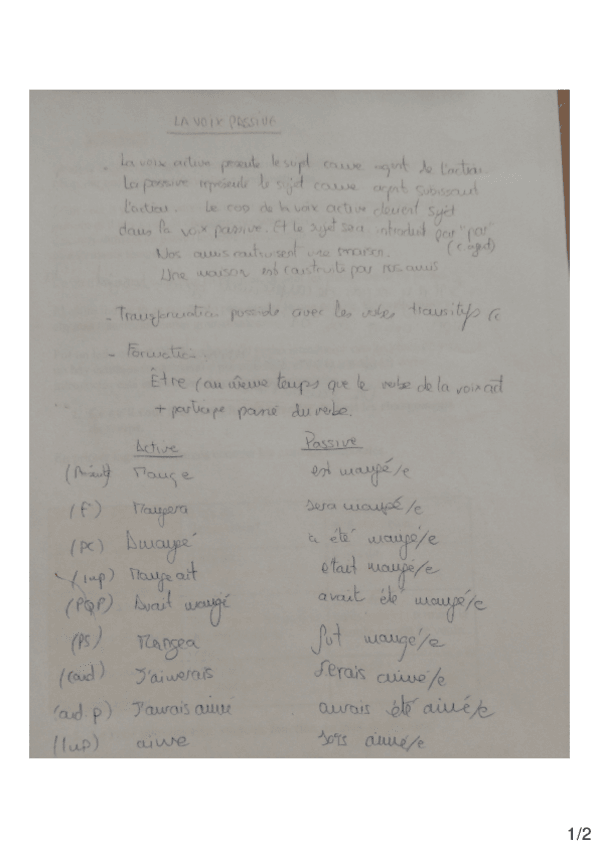 LA VOIX PASSIVE
- La voix active présente le sujet comme agent de l'action.
La passive représente le sujet comme agent subissant
l'action. Le COD de la voix active devient sujet
dans la voix passive. Et le sujet sera introduit par "par"
(c. agent)
Nos amis construisent une maison.
Une maison est construite par nos amis
- Transformation possible avec les verbes transitifs
- Formation.
Être (au même temps que le verbe de la voix act
+ participe passé du verbe.
Active Passive
(Présent) Mange est mangé/e
(F) Mangera sera mangé/e
(PC) A mangé a été mangé/e
(Imp) Mangeait était mangé/e
(PQP) Avait mangé avait été mangé/e
(PS) Mangea fut mangé/e
(Cond) J'aimerais serais aimé/e
(Cond. p) J'aurais aimé aurais été aimé/e
(Imp) aime sois aimé/e
1/2